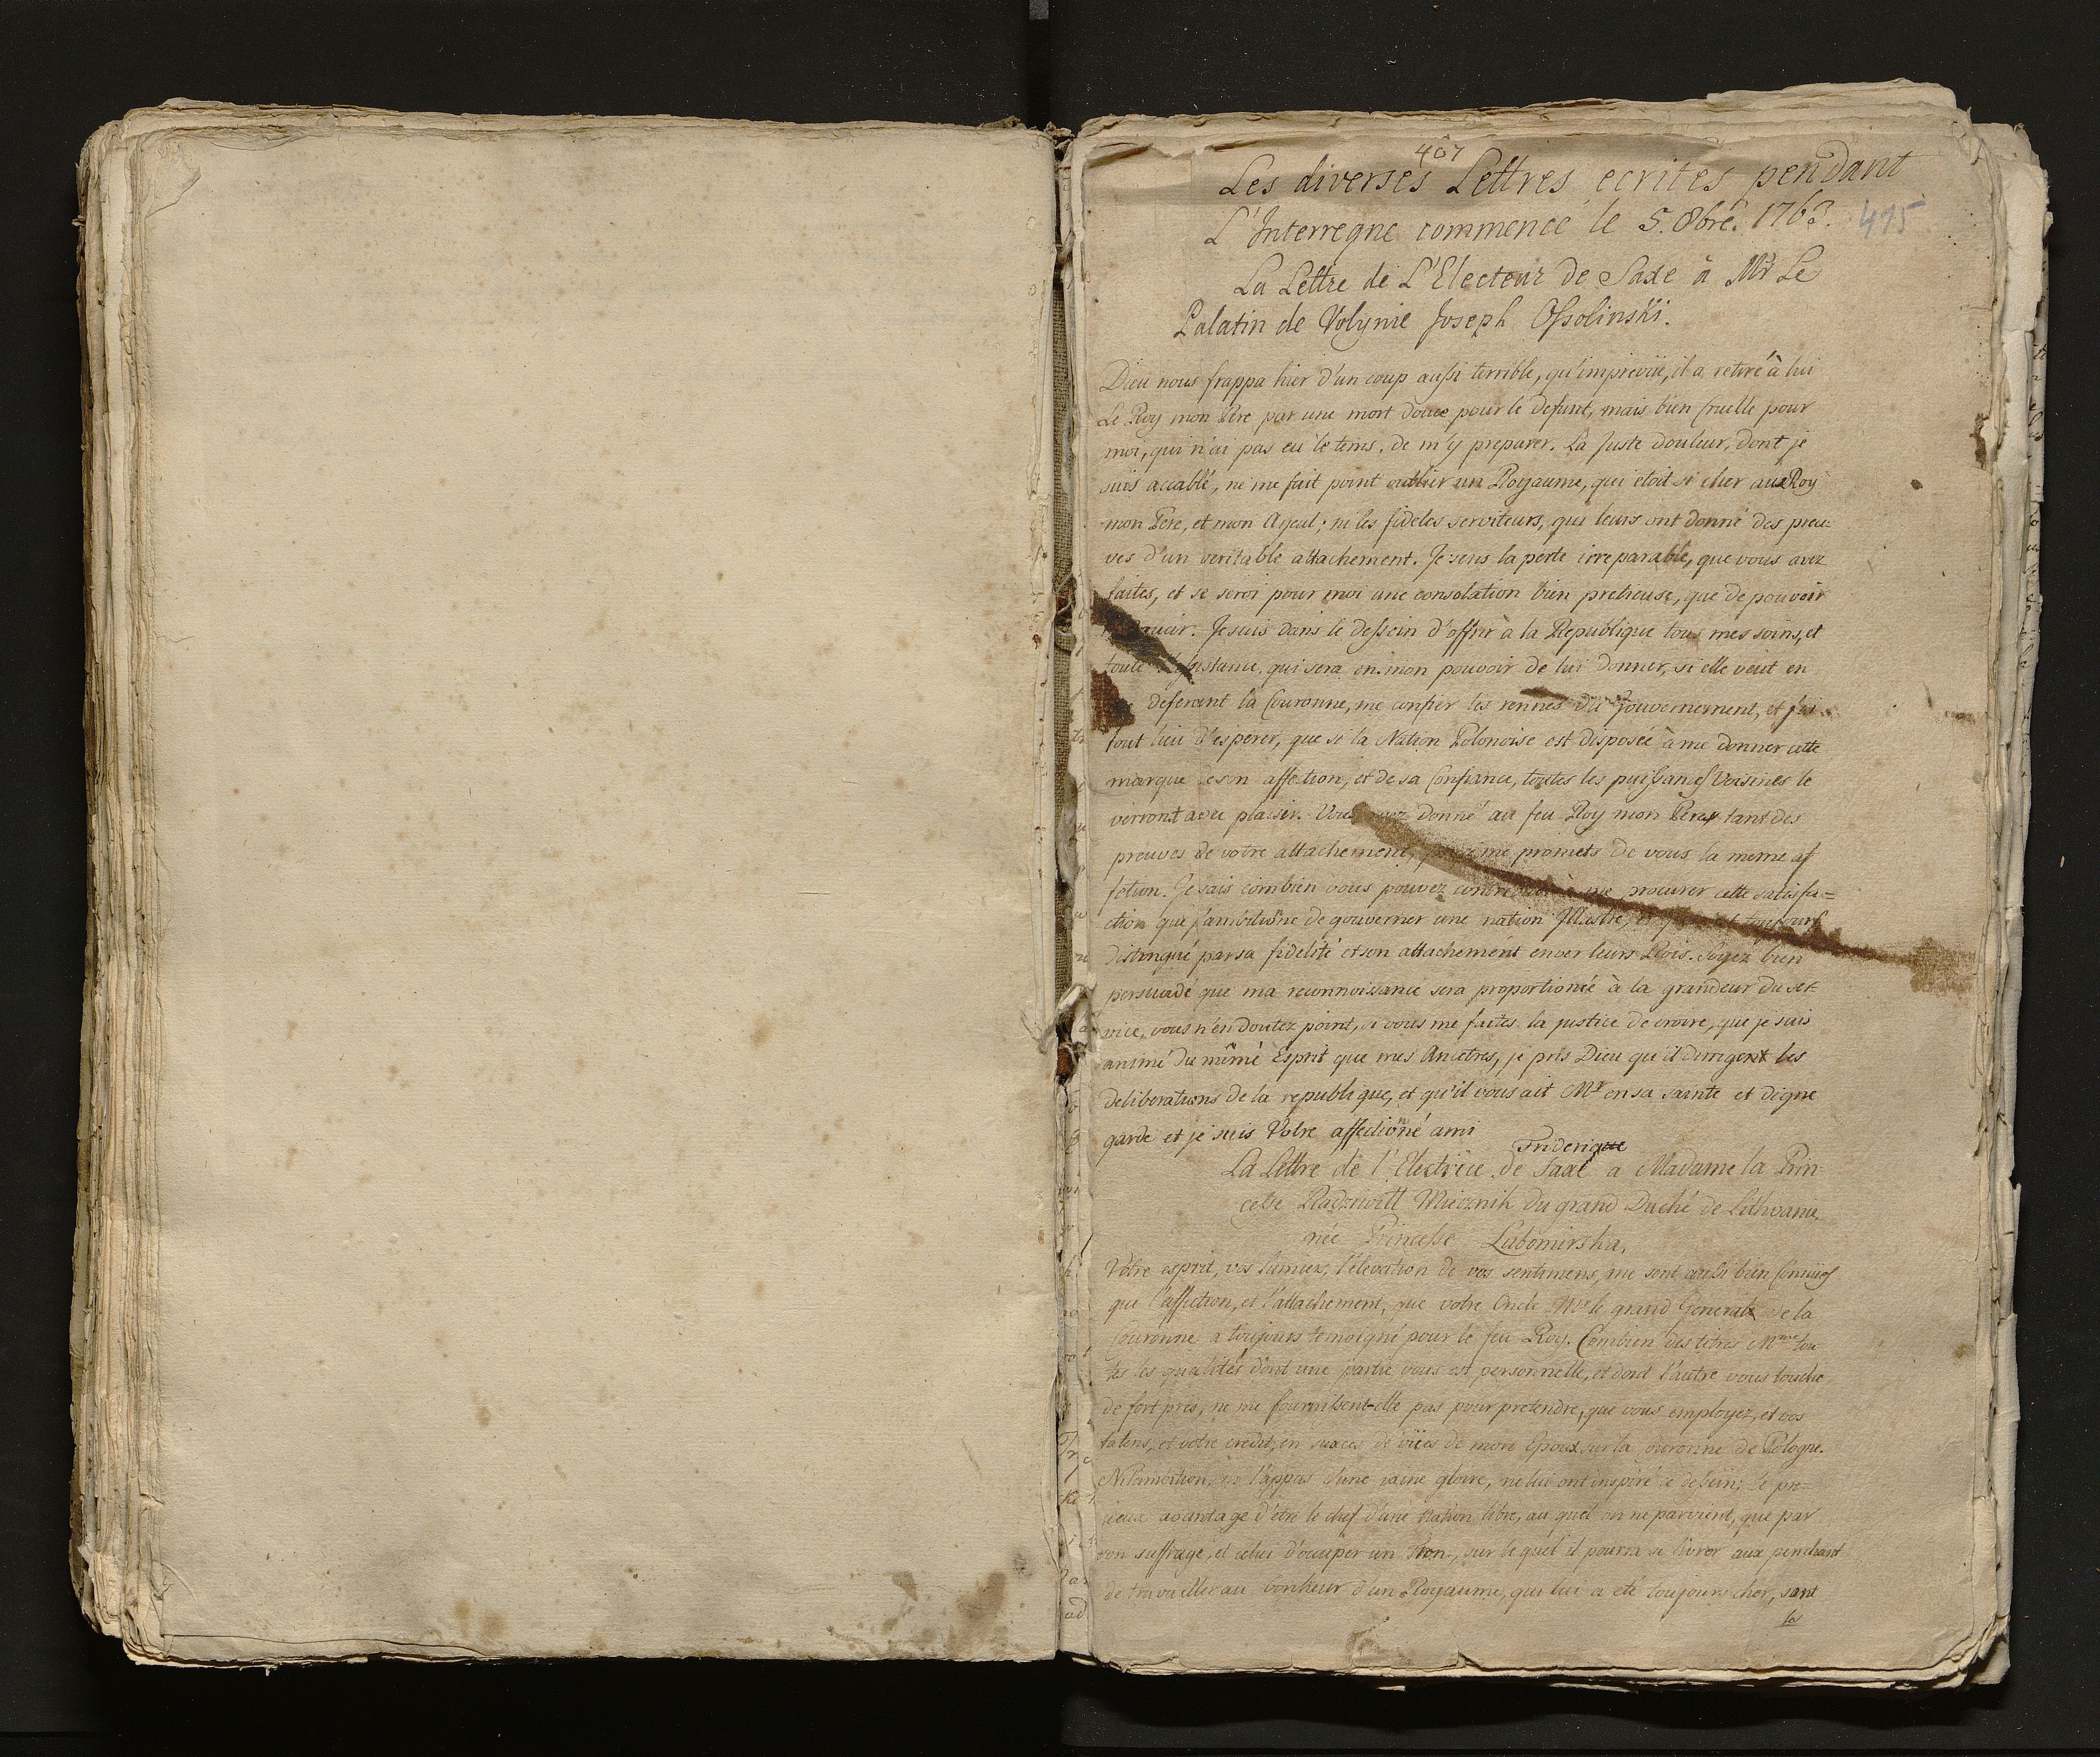 407
Les diverses Lettres ecrites pendant
L'Interregne commencé le 5. 8bre. 1763.
415
La Lettre de L'Electeur de Saxe à Mr. Le
Palatin de Volynie Joseph Ossolinski.
Dieu nous frappa hier d'un coup aussi terrible, qu'imprevüe, il a retiré à lui
Le Roy mon Pere par une mort douce pour le defunt, mais bien cruelle pour
moi, qui n'ai pas eu le tems, de m'y preparer. La juste douleur, dont je
suis accablé, ne me fait point oublier un Royaume, qui etoit si cher au Roy
mon Pere, et mon Ayeul; ni les fideles serviteurs, qui leurs ont donné des preu=
ves d'un veritable attachement. Je sens la perte irreparable, que vous avez
faites, et se seroi pour moi une consolation bien pretieuse, que de pouvoir
Je suis dans le dessein d'offrir à la Republique tous mes soins, et
toute qui sera en mon pouvoir de lui donner, si elle veut en
deferant la Couronne, me confier les rennes du Gouvernement, et j'ai
tout lieu d'esperer, que si la Nation Polonoise est disposée à me donner cette
marque de son affection, et de sa Confiance, toutes les puissances Voisines le
verront avec plaisir. Vous avez donné au feu Roy mon Pere tant des
preuves de votre attachement, me promets de vous la meme af
fetion. Je sais combien vous pouvez contribuer à me procurer cette satisfa=
ction que j'ambitione de gouverner une nation Illustre, toujours
distingué par sa fidelité et son attachement enver leurs Rois. Soyez bien
persuadé que ma reconnoissance sera proportionée à la grandeur du ser=
vice, vous n'en doutez point, si vous me faites la justice de croire, que je suis
animé du même Esprit que mes Ancetres, je pris Dieu qu'il dirrigent les
deliberations de la republique, et qu'il vous ait Mr en sa sainte et digne
garde et je suis Votre affectioné ami
Friderique
La Lettre de l'Electrice de Saxe a Madame la Prin=
cesse Radziwill Miecznik du grand Duché de Lithvanie,
née Princesse Lubomirska,
Votre esprit, vos lumiers, l'elevation de vos sentimens, me sont aussi bien Connües
que l'affection, et l'attachement, que votre Oncle Mr le grand General de la
Couronne a toujours temoigné pour le feu Roy. Combien des titres Mme tou
tes les qualités dont une partie vous est personnelle, et dont l'autre vous touche
de fort prés, ne me fournissent-elle pas pour pretendre, que vous employez, et vos
talens, et votre credit, en succes de vües de mon Epoux sur la Couronne de Pologne.
Ni l'ambition, ni l'appas d'une vaine gloire, ne lui ont inspiré ce dessein; le pre=
cieux avantage d'être le chef d'une Nation libre, au quel on ne parvient, que par
son suffrage, et celui d'occuper un tron, sur le quel il pourra se livrer aux penchant
de travailler au bonheur d'un Royaume, qui lui a eté toujours cher, sont
les